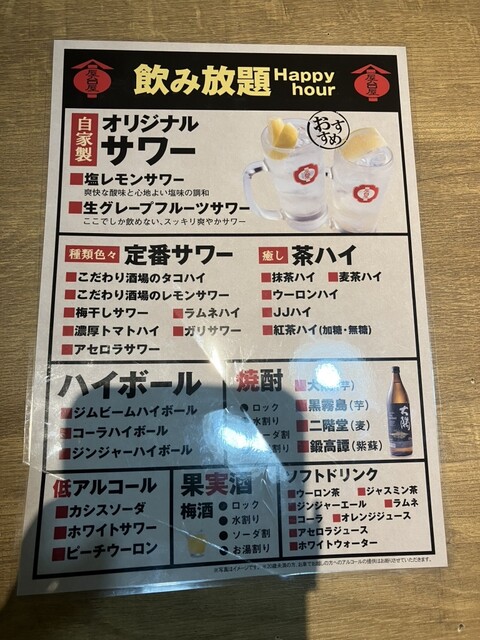 屋台屋
飲み放題 Happy hour
屋台屋
自家製 オリジナルサワー
おすすめ
■塩レモンサワー
爽快な酸味と心地よい塩味の調和
■生グレープフルーツサワー
ここでしか飲めない、スッキリ爽やかサワー
種類色々 定番サワー
■こだわり酒場のタコハイ
■こだわり酒場のレモンサワー
■梅干しサワー ■ラムネハイ
■濃厚トマトハイ ■ガリサワー
■アセロラサワー
癒し 茶ハイ
■抹茶ハイ ■麦茶ハイ
■ウーロンハイ
■JJハイ
■紅茶ハイ(加糖・無糖)
ハイボール
■ジムビームハイボール
■コーラハイボール
■ジンジャーハイボール
焼酎
●ロック
●水割り
●ソーダ割
■大隅(芋)
■黒霧島(芋)
■二階堂(麦)
■鍛高譚(紫蘇)
大隅
低アルコール
■カシスソーダ
■ホワイトサワー
■ピーチウーロン
果実酒
梅酒
●ロック
●水割り
●ソーダ割
●お湯割り
ソフトドリンク
■ウーロン茶 ■ジャスミン茶
■ジンジャーエール ■ラムネ
■コーラ ■オレンジジュース
■アセロラジュース
■ホワイトウォーター
※写真はイメージです。※20歳未満の方、お車でお越しの方へのアルコールの提供はお断りさせていただきます。